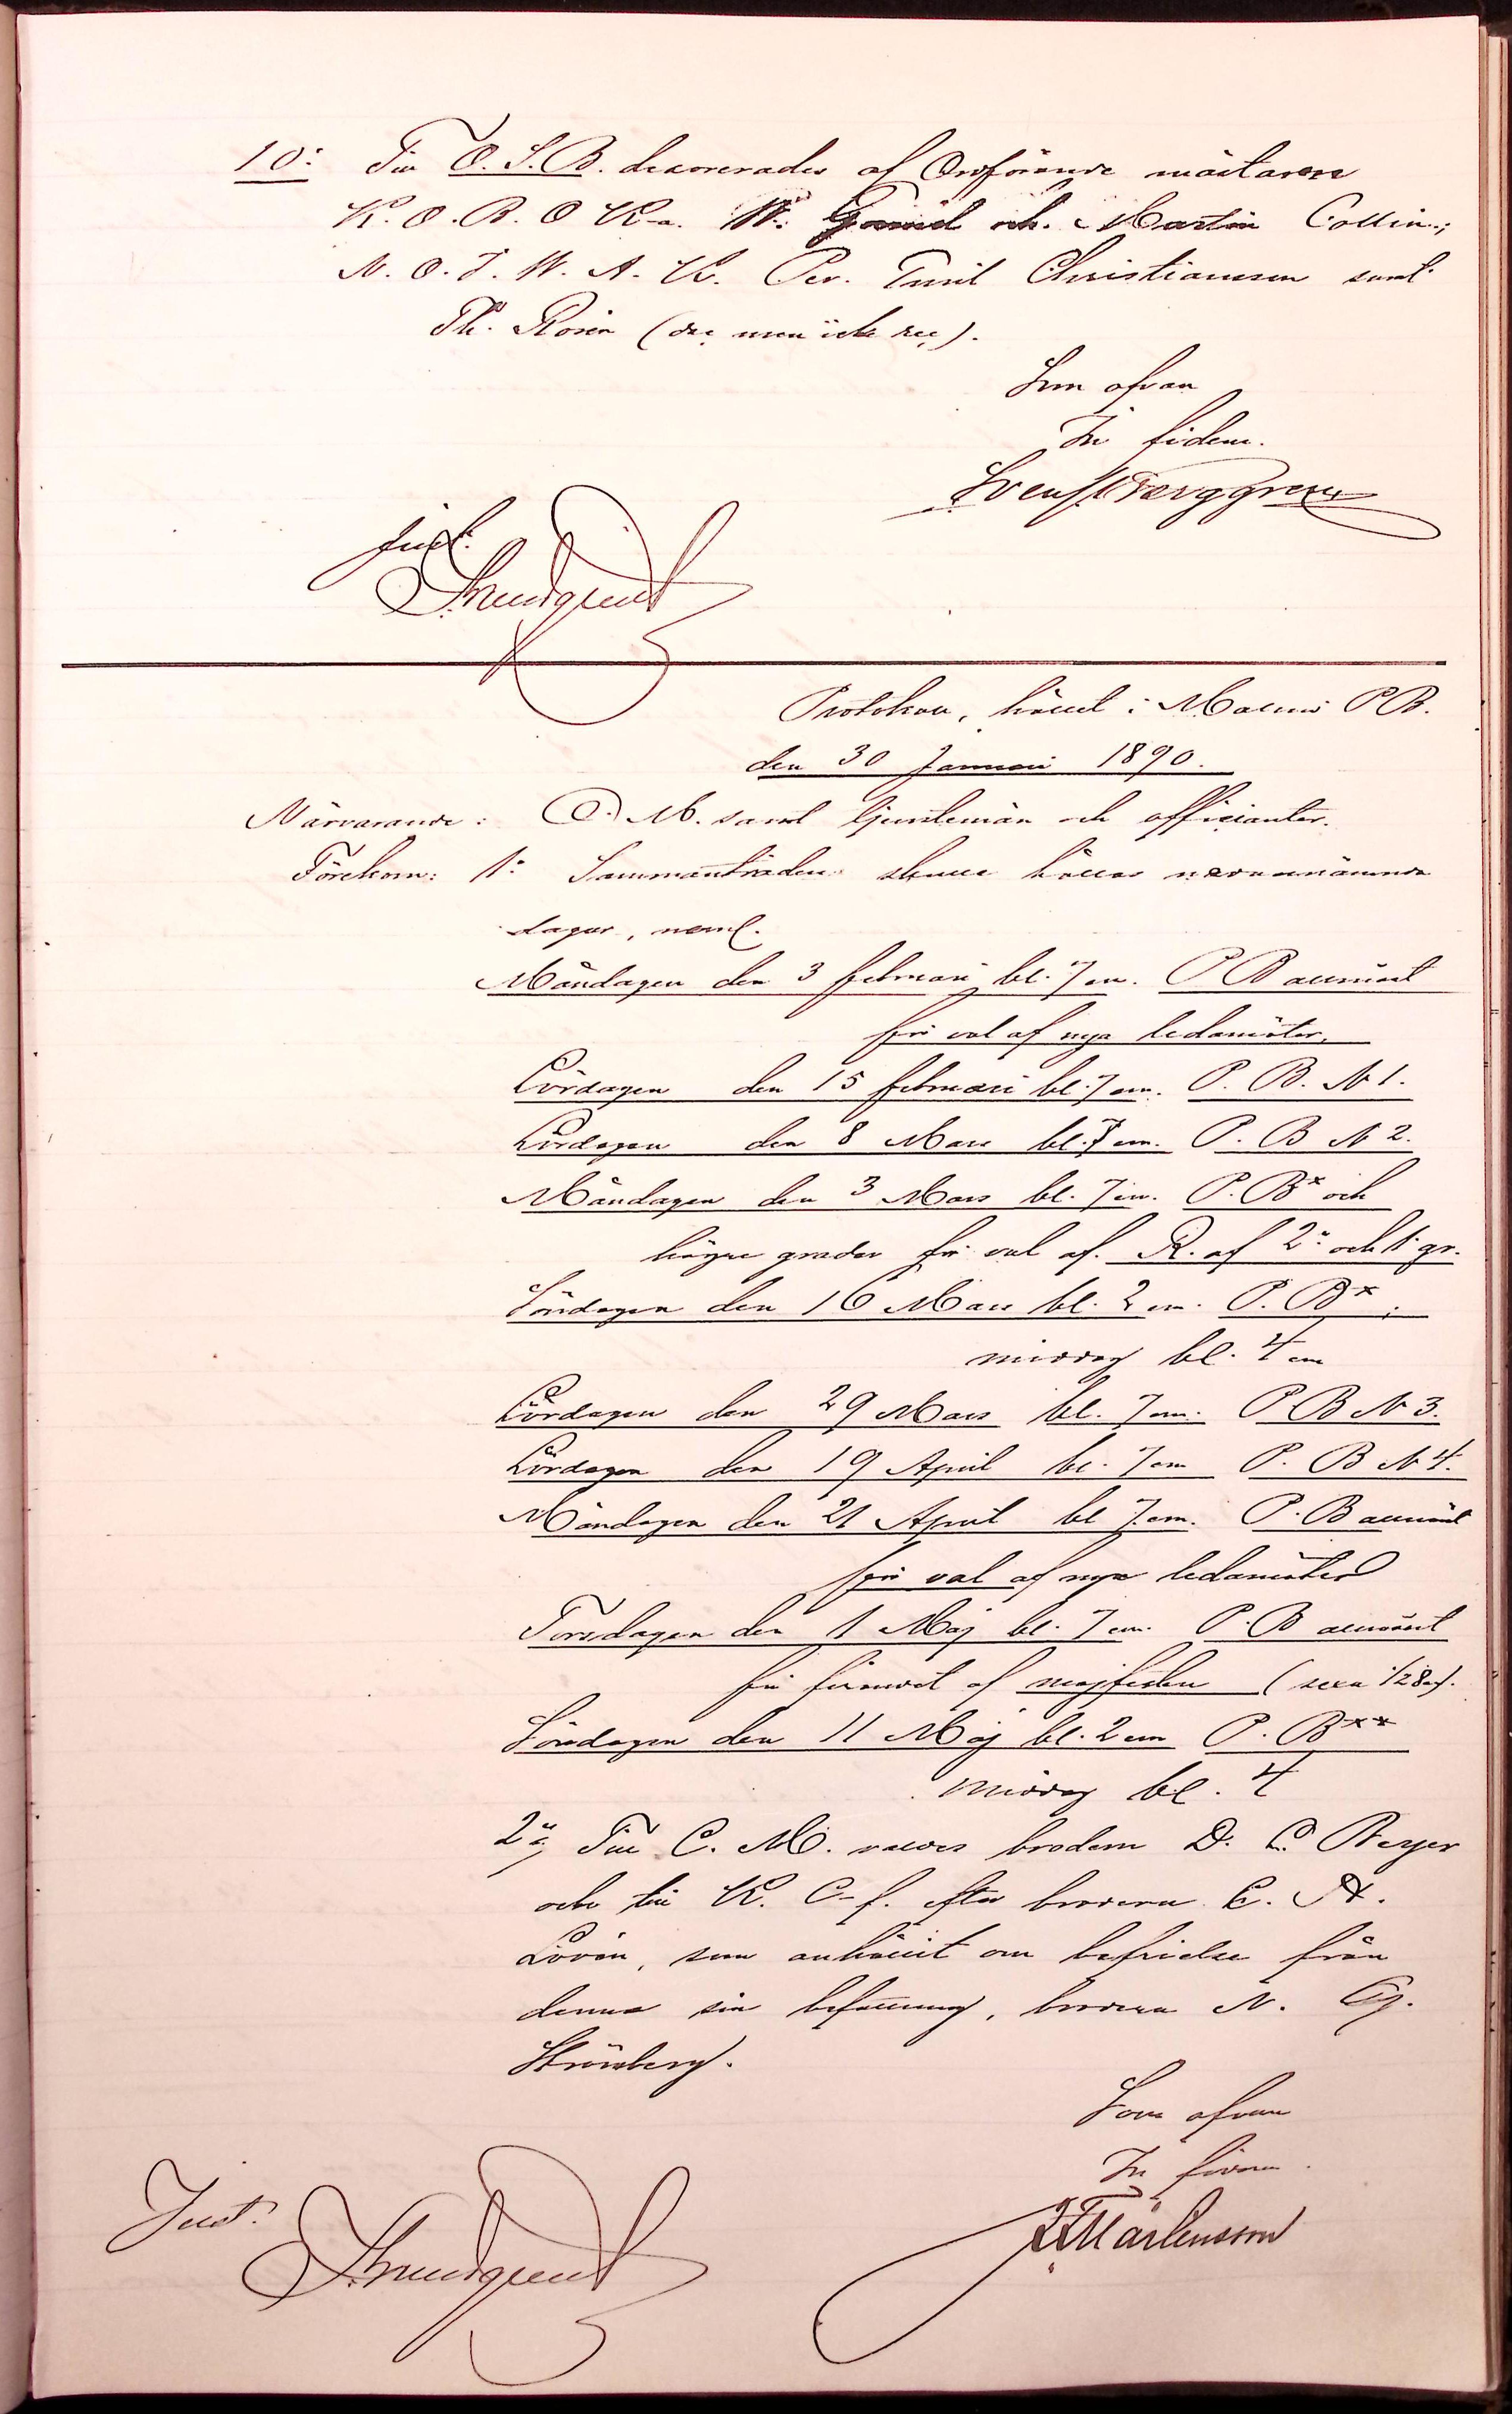 10: Till O. S. B. dekorerades af Ordförande mästaren
K. O. B. O K-a. W. och Martin Collin;
N. O. I. W. A. K. Per. Emil Christiansen samt
Th. Rosén
Som ofvan
In fidem.
Sven Berggren
Just.
Protokoll, hållet i Malmö P B.
den 30 Januari 1890.
Närvarande: O. M. samt tjenstemän och officianter.
Förekom: 1: Sammanträden skulle hållas nedannämnda
dagar, neml.
Måndagen den 3 februari kl. 7 em. P B allmänt
för val af nya ledamöter.
Lördagen den 15 februari kl. 7 em. P. B. N 1.
Lördagen den 8 Mars kl. 7 em. P. B N 2.
Måndagen den 3 Mars kl. 7 em. P. B* och
högre grader för val af. R. af 2: och 1: gr.
Söndagen den 16 Mars kl. 2 em. P. B*;
middag kl. 4 em
Lördagen den 29 Mars kl. 7 em. P B N 3.
Lördagen den 19 April kl. 7 em P. B N 4.
Måndagen den 21 April kl 7. em. P. B allmänt
för val af nya ledamöter
Torsdagen den 1 Maj kl. 7 em. P. B allmänt
för firandet af majfesten (sexa 1/2 8
Söndagen den 11 Maj kl. 2 em P. B**
middag kl. 4
2: Till C. M. valdes brodern D. C. Beyer
och till K. C-f. efter brodern C. A.
Lovén, som anhållit om befrielse från
denna sin befattning, brodern N. G.
Strömberg.
Som ofvan
In fidem.
Mårtensson
Just.